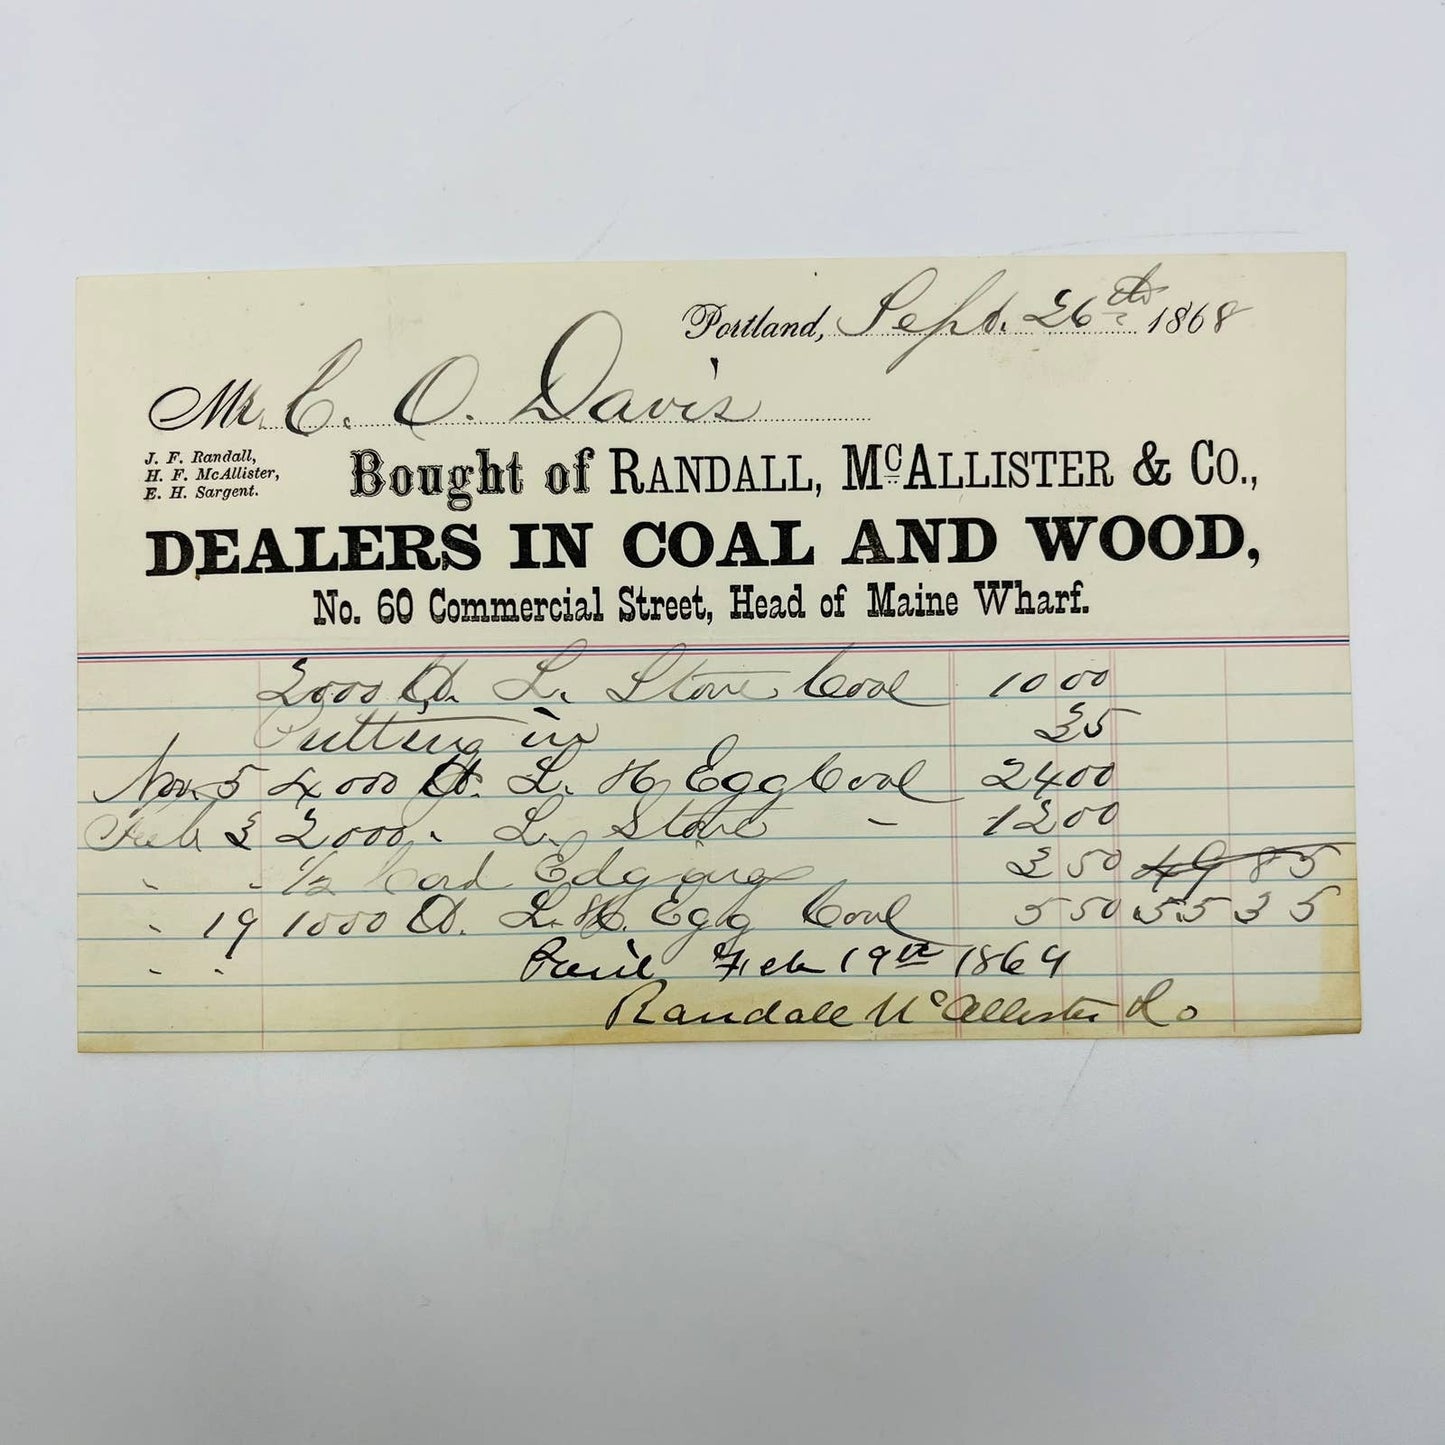 Portland, Sept. 26th 1868
Mr. C. O. Davis
J. F. Randall,
H. F. McAllister,
E. H. Sargent.
Bought of RANDALL, McALLISTER & Co.,
DEALERS IN COAL AND WOOD,
No. 60 Commercial Street, Head of Maine Wharf.
2000 lb. L. Stove Coal 10 00
Putting in 35
Nov. 5 4000 lb. L. H. Egg Coal 24 00
Feb 3 2000 " L. Stove - 12 00
" " 1/2 Cord Edgings 3 50 49 85
" 19 1000 lb. L. H. Egg Coal 5 50 55 35
" " Paid Feb 19th 1869
Randall McAllister & Co